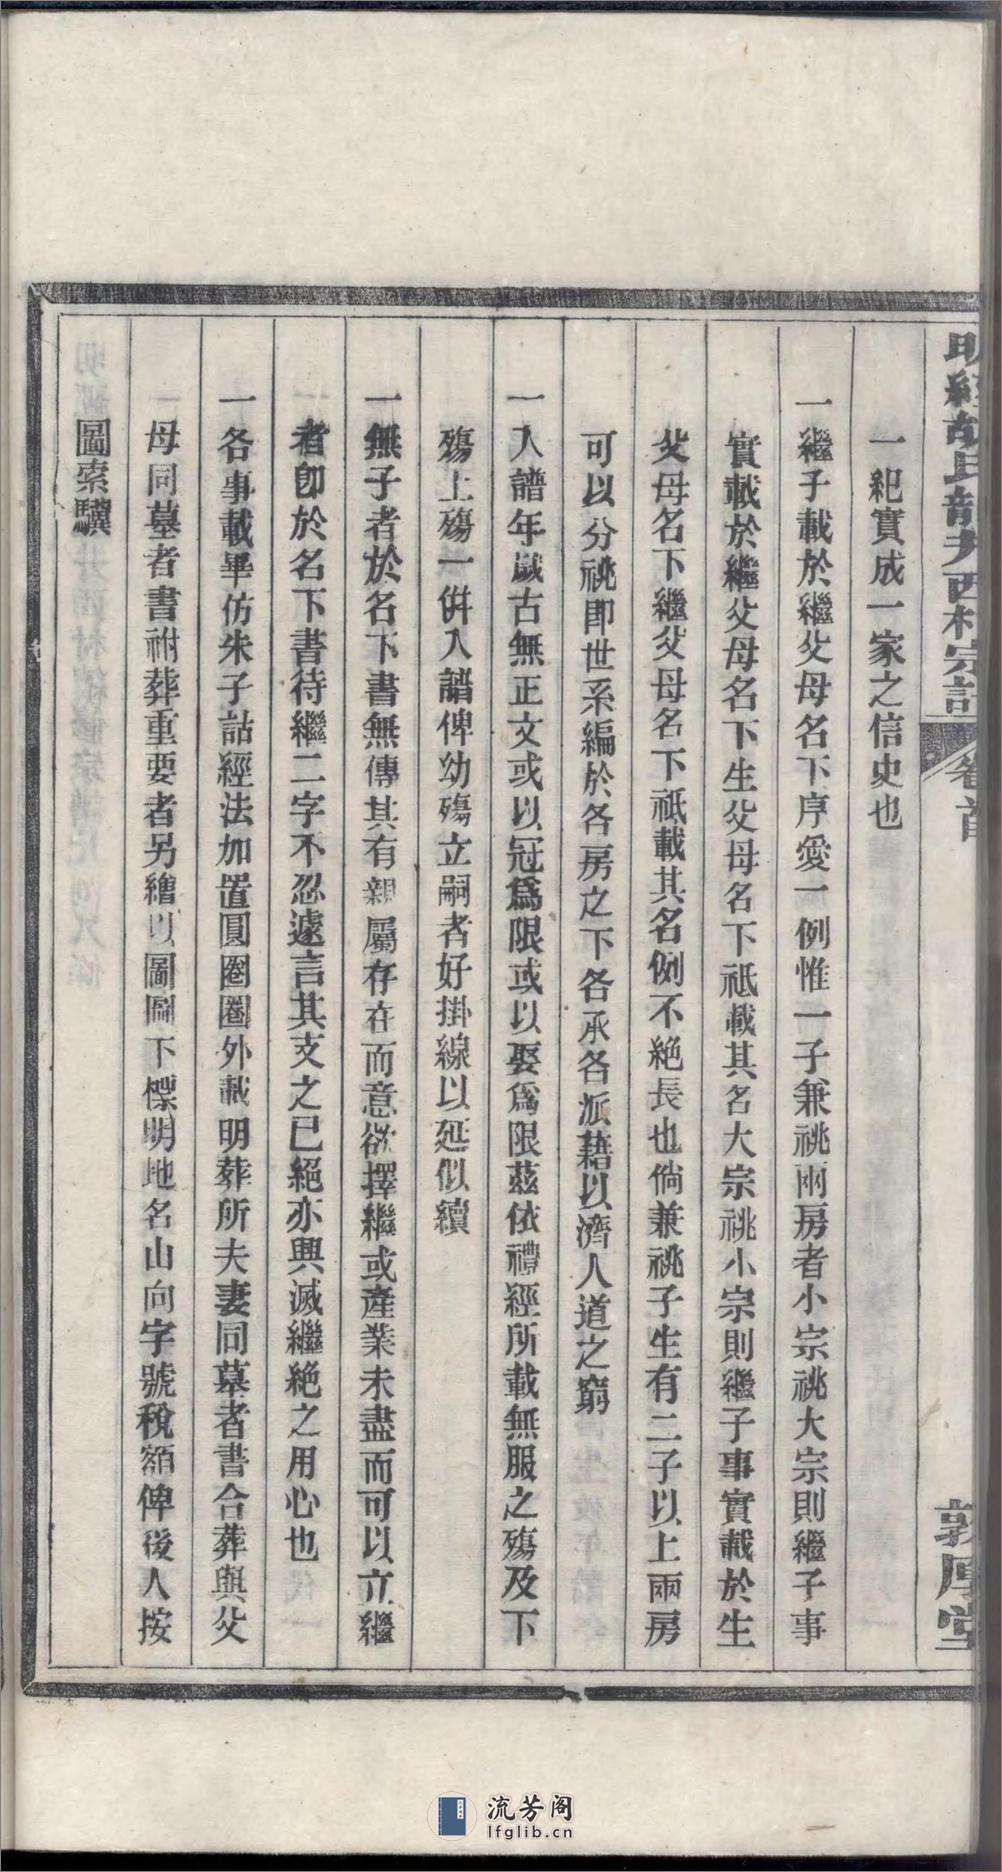 一紀實成一家之信史也
一繼子載於繼父母名下序愛一例惟一子兼祧兩房者小宗祧大宗則繼子事
實載於繼父母名下生父母名下祗載其名大宗祧小宗則繼子事實載於生
父母名下繼父母名下祗載其名例不絕長也倘兼祧子生有二子以上兩房
可以分祧即世系編於各房之下各承各派藉以濟人道之窮
一入譜年歲古無正文或以冠爲限或以娶爲限茲依禮經所載無服之殤及下
殤上殤一併入譜俾幼殤立嗣者好掛線以延似續
一無子者於名下書無傳其有親屬存在而意欲擇繼或產業未盡而可以立繼
者卽於名下書待繼二字不忍遽言其支之已絕亦興滅繼絕之用心也
一各事載畢仿朱子詁經法加置圓圈圈外載明葬所夫妻同墓者書合葬與父
母同墓者書祔葬重要者另繪以圖圖下標明地名山向字號稅額俾後人按
圖索驥
西村宗
卷首
敦厚堂
流芳阁
lfglib.cn